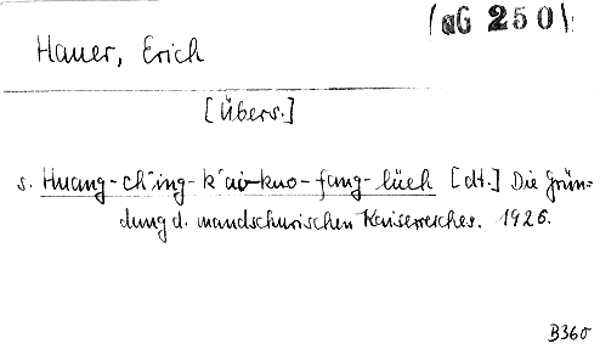 (aG 250)
Hauer, Erich
[Übers.]
s. Huang-ch'ing-k'ai-kuo-fang-lüeh [dt.] Die Grün-
dung d. mandschurischen Kaiserreiches. 1926.
B360